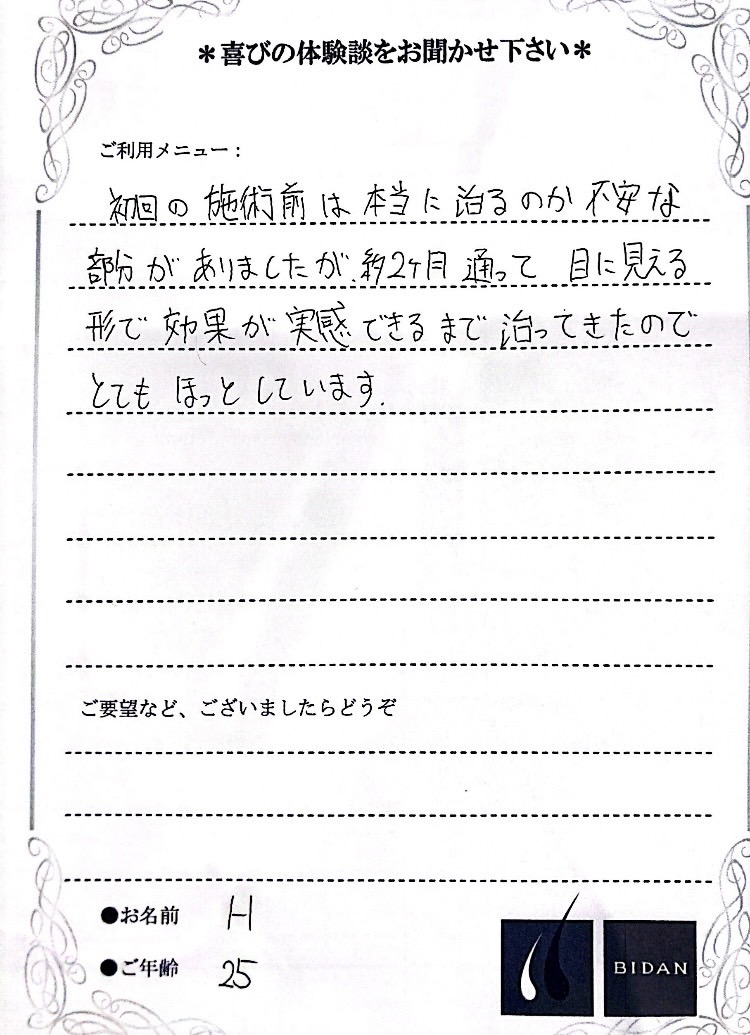 ＊喜びの体験談をお聞かせ下さい＊
ご利用メニュー：
初回の施術前は本当に治るのか不安な
部分がありましたが、約2ヶ月通って 目に見える
形で効果が実感できるまで治ってきたので
とてもほっとしています.
ご要望など、ございましたらどうぞ
●お名前 H
●ご年齢 25
BIDAN